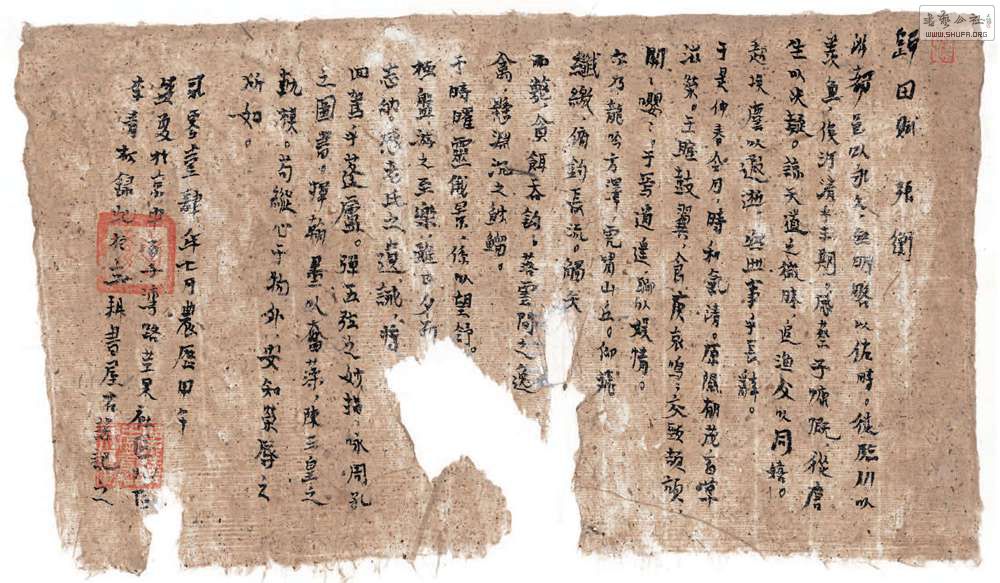 書藝公社
WWW.SHUFA.ORG
歸田賦 張衡
游都邑以永久，無明略以佐時。徒臨川以
羨魚，俟河清乎未期。感蔡子慷慨，從唐
生以决疑。諒天道之微昧，追漁父以同嬉。
超埃塵以遐逝，與世事乎長辭。
于是仲春令月，時和氣清。原隰郁茂，百草
滋榮。王雎鼓翼，倉庚哀鳴；交頸頡頏，
關關嚶嚶。于焉逍遥，聊以娱情。
尔乃龍吟方澤，虎嘯山丘。仰飛
纖繳，俯釣長流。觸矢
而斃，貪餌吞鈎；落雲間之逸
禽，懸淵沉之魦鰡。
于時曜靈俄景，係以望舒。
極盤游之至樂，雖日夕而
忘劬。感老氏之遺誡，將
回駕乎蓬廬。彈五弦之妙指，咏周孔
之圖書。揮翰墨以奮藻，陳三皇之
軌模。苟縱心于物外，安知榮辱之
所如。
貳零壹肆年七月農歷甲午
夏於京
錄於耕書屋記之